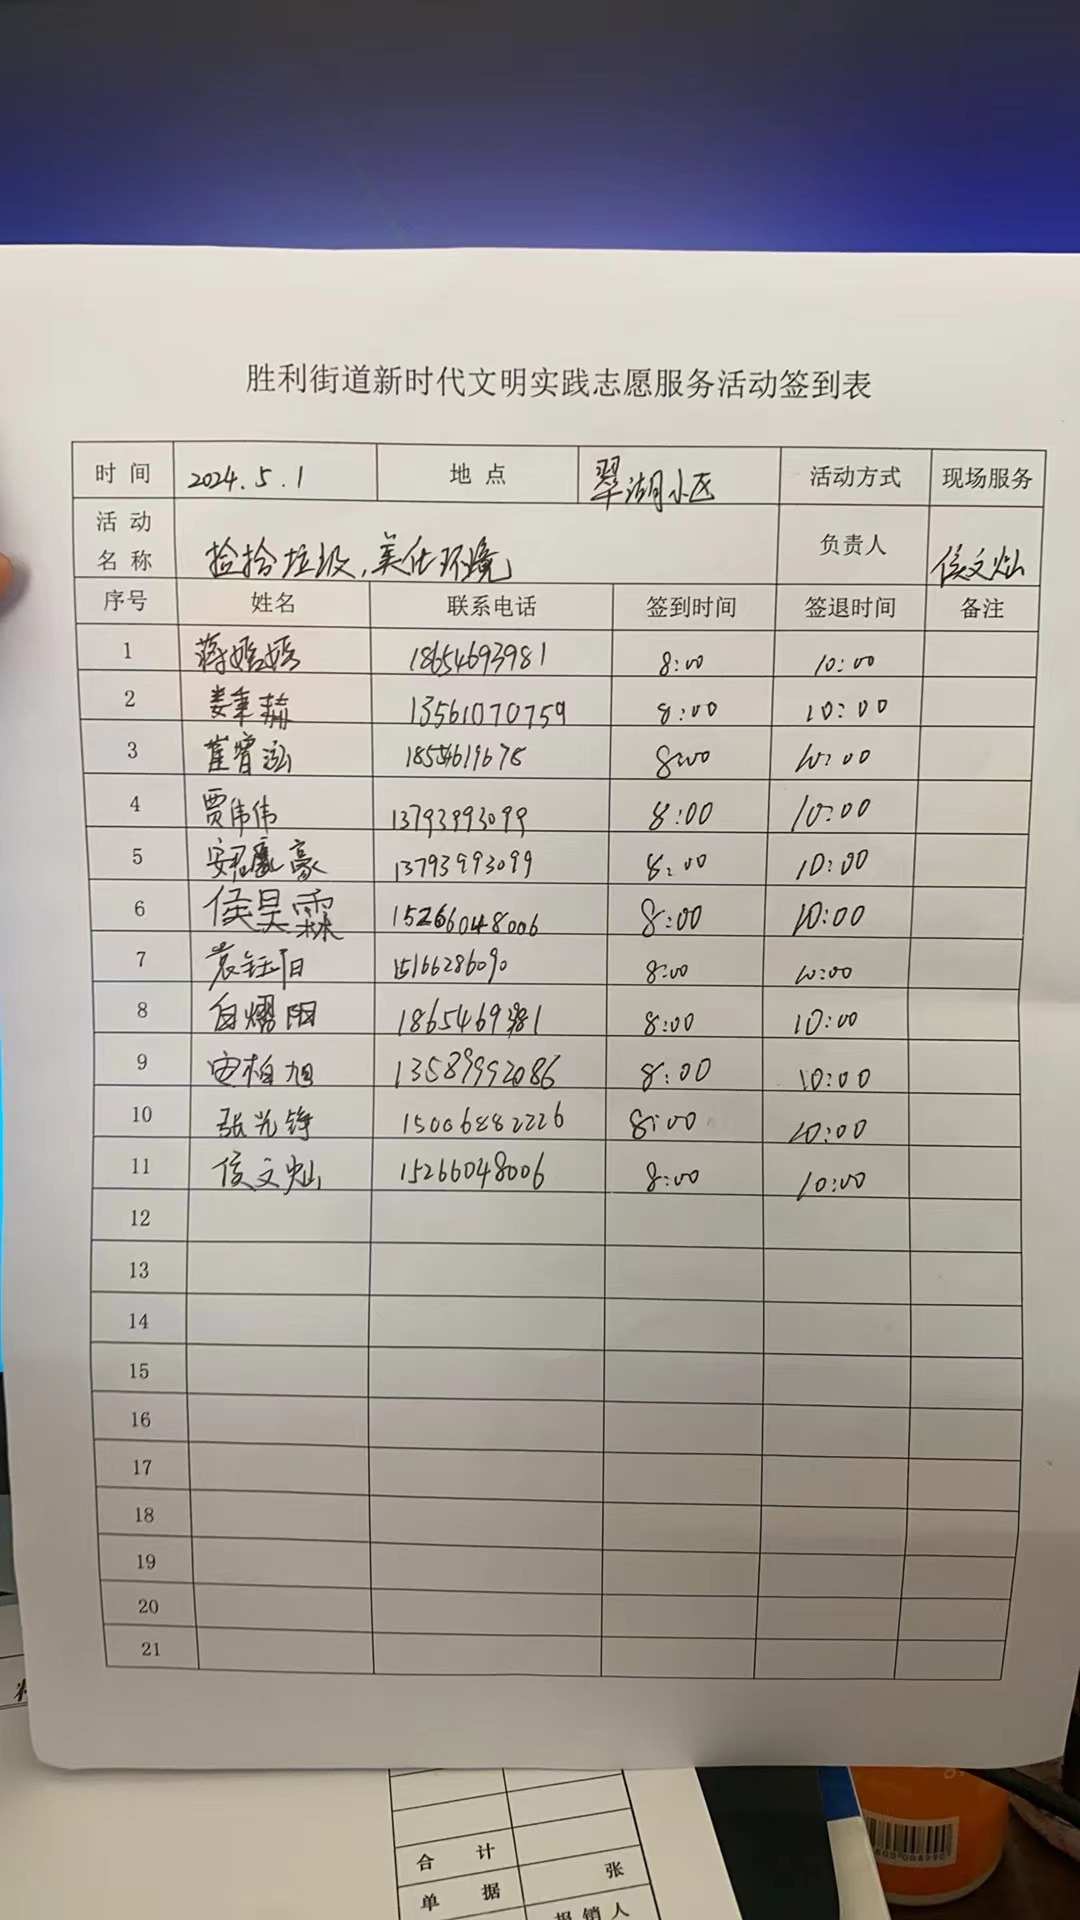 胜利街道新时代文明实践志愿服务活动签到表
时间 2024.5.1 地点 翠湖小区 活动方式 现场服务
活动名称 捡拾垃圾,美化环境 负责人 侯文灿
序号 姓名 联系电话 签到时间 签退时间 备注
1 蒋嫣嫣 18654693981 8:00 10:00
2 娄秉赫 13561070759 8:00 10:00
3 崔 泓 8:00 10:00
4 贾伟伟 13793993099 8:00 10:00
5 安 豪 13793993099 8:00 10:00
6 侯昊霖 15266048006 8:00 10:00
7 袁钰阳 15166286090 8:00 10:00
8 白熠阳 8:00 10:00
9 柏旭 13589992086 8:00 10:00
10 张光锋 15006882226 8:00 10:00
11 侯文灿 15266048006 8:00 10:00
12
13
14
15
16
17
18
19
20
21
合计
单据 张
报销人